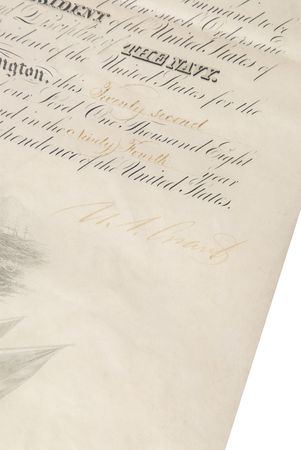 ommand to be
such Orders and
SIDENT of the United States of
THE NAVY.
sident of the United States for the
ington, this Twenty second
our Lord One Thousand Eight
nd in the Ninety Fourth year
pendence of the United States.
U. S. Grant